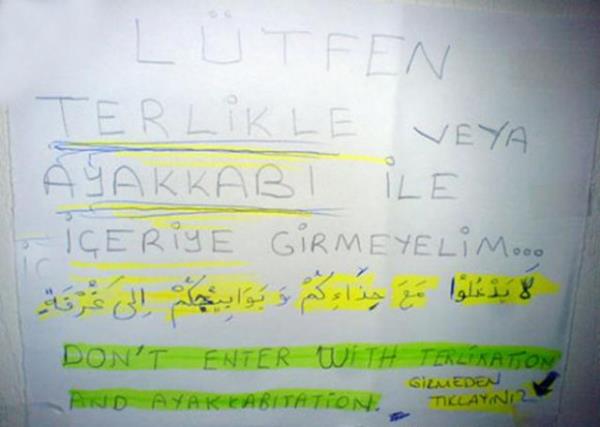 LÜTFEN
TERLİKLE VEYA
AYAKKABI İLE
İÇERİYE GİRMEYELİM...
لَا يَدْخُلُوا مَعَ حِذَاءِكُمْ وَ بَوَابِيجِكُمْ إِلَى غُرْفَةٍ
DON'T ENTER WITH TERLIKATION
AND AYAKKABITATION.
GİRMEDEN
TIKLAYINIZ